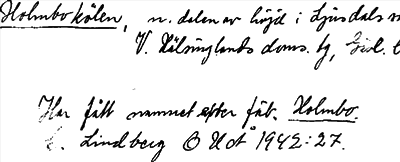 Holmbokölen, n. delen av höjd i Ljusdals
V. Hälsinglands doms. tg, Gävl.
Har fått namnet efter fäb. Holmbo.
Lindberg OUÅ 1942:27.